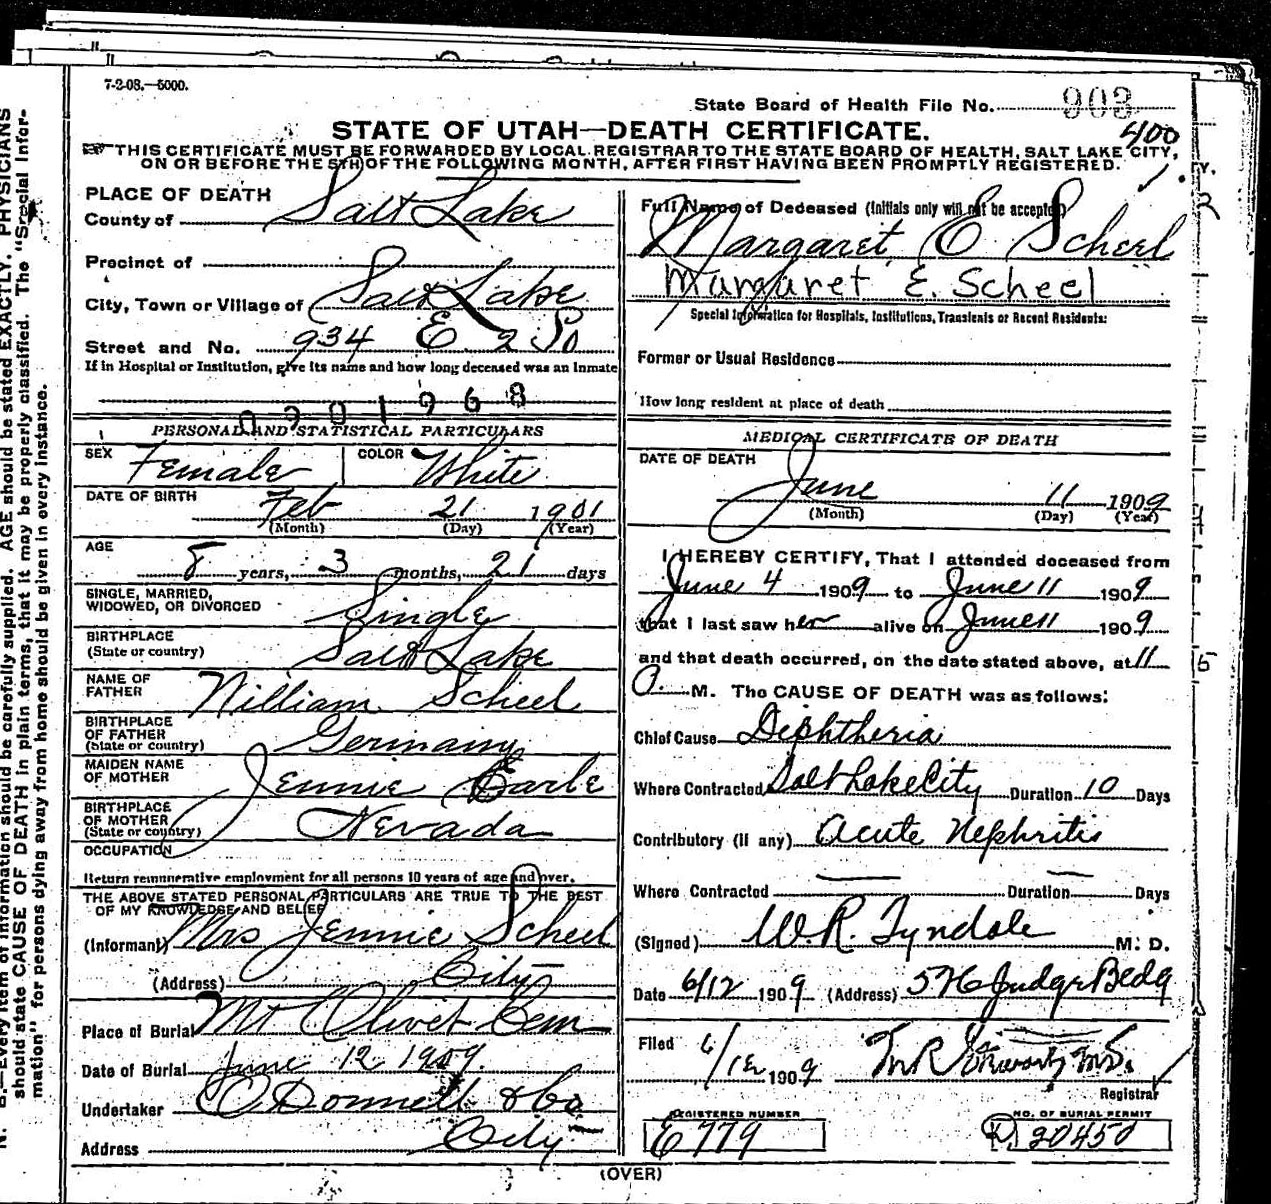 7-2-08.—5000.
State Board of Health File No. 903
400
STATE OF UTAH—DEATH CERTIFICATE.
THIS CERTIFICATE MUST BE FORWARDED BY LOCAL REGISTRAR TO THE STATE BOARD OF HEALTH, SALT LAKE CITY,
ON OR BEFORE THE 5TH OF THE FOLLOWING MONTH, AFTER FIRST HAVING BEEN PROMPTLY REGISTERED.
PLACE OF DEATH
County of Salt Lake
Precinct of
City, Town or Village of Salt Lake
Street and No. 934 E. 2 So
If in Hospital or Institution, give its name and how long deceased was an Inmate
0901968
PERSONAL AND STATISTICAL PARTICULARS
SEX Female COLOR White
DATE OF BIRTH
Feb 21 1901
(Month) (Day) (Year)
AGE
8 years, 3 months, 21 days
SINGLE, MARRIED,
WIDOWED, OR DIVORCED Single
BIRTHPLACE
(State or country) Salt Lake
NAME OF
FATHER William Scheel
BIRTHPLACE
OF FATHER
(State or country) Germany
MAIDEN NAME
OF MOTHER Jennie Earle
BIRTHPLACE
OF MOTHER
(State or country) Nevada
OCCUPATION
Return remunerative employment for all persons 10 years of age and over.
THE ABOVE STATED PERSONAL PARTICULARS ARE TRUE TO THE BEST
OF MY KNOWLEDGE AND BELIEF
(Informant) Mrs Jennie Scheel
(Address) City
Place of Burial Mt Olivet Cem
Date of Burial June 12 1909.
Undertaker O'Donnell & Co
Address City
Full Name of Deceased (Initials only will not be accepted)
Margaret E Scheel
Margaret E. Scheel
Special Information for Hospitals, Institutions, Transients or Recent Residents:
Former or Usual Residence
How long resident at place of death
MEDICAL CERTIFICATE OF DEATH
DATE OF DEATH
June 11 1909
(Month) (Day) (Year)
I HEREBY CERTIFY, That I attended deceased from
June 4 1909 to June 11 1909
that I last saw her alive on June 11 1909
and that death occurred, on the date stated above, at 11
M. The CAUSE OF DEATH was as follows:
Chief Cause Diphtheria
Where Contracted Salt Lake City Duration 10 Days
Contributory (if any) Acute Nephritis
Where Contracted Duration Days
(Signed) W. R. Tyndale M. D.
Date 6/12 1909 (Address) Judge Bldg
Filed 6/12 1909 M.D.
Registrar
REGISTERED NUMBER
E 779
NO. OF BURIAL PERMIT
D. 20450
(OVER)
N. B.—Every item of information should be carefully supplied. AGE should be stated EXACTLY. PHYSICIANS
should state CAUSE OF DEATH in plain terms, that it may be properly classified. The "Special Infor-
mation" for persons dying away from home should be given in every instance.